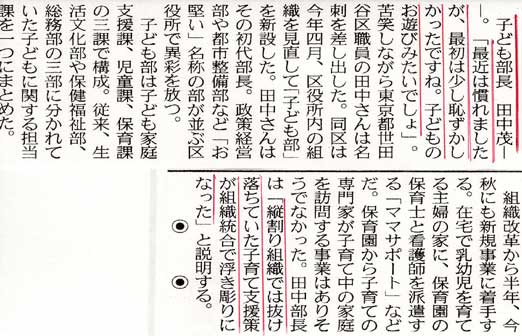 子ども部長　田中茂―
―。「最近は慣れました
が、最初は少し恥ずかし
かったですね。子どもの
お遊びみたいでしょ」。
苦笑しながら東京都世田
谷区職員の田中さんは名
刺を差し出した。同区は
今年四月、区役所内の組
織を見直して「子ども部」
を新設した。田中さんは
その初代部長。政策経営
部や都市整備部など「お
堅い」名称の部が並ぶ区
役所で異彩を放つ。
子ども部は子ども家庭
支援課、児童課、保育課
の三課で構成。従来、生
活文化部や保健福祉部、
総務部の三部に分かれて
いた子どもに関する担当
課を一つにまとめた。
組織改革から半年、今
秋にも新規事業に着手す
る。在宅で乳幼児を育て
る主婦の家に、保育園の
保育士と看護師を派遣す
る「ママサポート」など
だ。保育園から子育ての
専門家が子育て中の家庭
を訪問する事業はありそ
うでなかった。田中部長
は「縦割り組織では抜け
落ちていた子育て支援策
が組織統合で浮き彫りに
なった」と説明する。